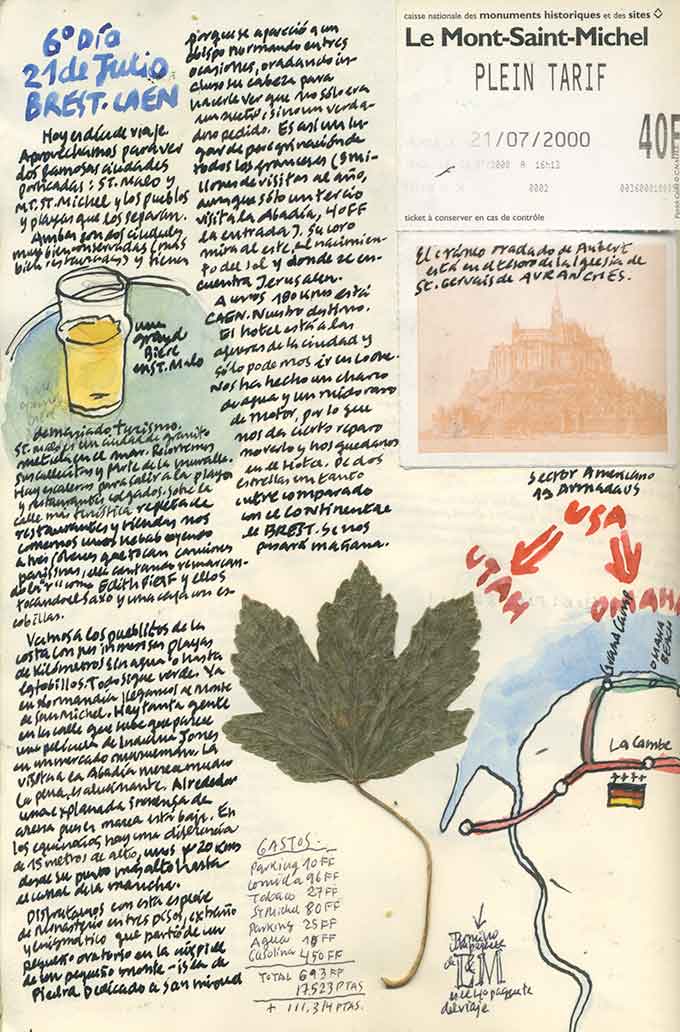 6º Día
21 de Julio
BREST. CAEN
Hoy es día de viaje
Aprovechamos para ver
dos famosas ciudades
: ST. MALO y
MT. ST. MICHEL y los pueblos
y playas que los separan.
Ambas son dos ciudades
muy bien conservadas (más
bien restauradas) y tienen
una
grand
Bière
en ST. Malo
demasiado turismo.
ST. Malo es una ciudad de granito
metida en el mar. Recorremos
sus callecitas y parte de la muralla.
Hay escaleras para salir a la playa
y restaurantes colgados sobre la
calle más turística repleta de
restaurantes y tiendas nos
comemos unos kebab oyendo
a tres jóvenes que tocan canciones
parisinas, ella cantando remarcan-
do la "r" como Edith Piaf y ellos
tocando el saxo y una caja con es-
cobillas.
Vamos a los pueblitos de la
costa con sus inmensas playas
de kilómetros sin agua o hasta
los tobillos. Todo sigue verde. Ya
en Normandía llegamos al Monte
de San Michel. Hay tanta gente
en la calle que sube que parece
una película de Indiana Jones
en un mercado musulmán. La
visita a la Abadía merece mucho
la pena, es alucinante. Alrededor
una explanada inmensa de
arena pues la marea está baja. En
los equinocios hay una diferencia
de 15 metros de alto, unos 20 Kms
desde su punto más alto hasta
el canal de la mancha.
Disfrutamos con esta especie
de Monasterio en tres pisos, extraño
y enigmático que partió de un
pequeño oratorio en la cúspide
de un pequeño monte-isla de
Piedra dedicado a San Miguel
porque se apareció a un
obispo normando en tres
ocasiones, oradando in-
cluso su cabeza para
hacerle ver que no sólo era
un sueño sino un verda-
dero pedido. Es así un lu-
gar de peregrinación de
todos los franceses (3 mi-
llones de visitas al año,
aunque sólo un tercio
visita la Abadía, 40FF
la entrada). Su coro
mira al este, al nacimien-
to del sol y donde se en-
cuentra Jerusalen.
A unos 180 kms está
CAEN. Nuestro destino.
El hotel está a las
afueras de la ciudad y
sólo podemos ir en coche.
Nos ha hecho un charco
de agua y un ruido raro
de motor, por lo que
nos da cierto reparo
moverlo y nos quedamos
en el Hotel. De dos
estrellas un tanto
cutre comparado
con el Continental
de BREST. Se nos
pasará mañana.
caisse nationale des monuments historiques et des sites
Le Mont-Saint-Michel
PLEIN TARIF
40F
21/07/2000
A 16h13
0002
ticket à conserver en cas de contrôle
El cráneo oradado de Aubert
está en el tesoro de la Iglesia de
ST. Gervais de AVRANCHES.
Sector Americano
USA
UTAH
OMAHA
Grand Camp
OMAHA
BEACH
La Cambe
GASTOS.-
Parking 10FF
Comida 96FF
Tabaco 27FF
St Michel 80FF
Parking 25FF
Agua
Gasolina 450FF
TOTAL 693FF
17.523 PTAS
+ 111.314 PTAS.
Termino
de
L&M
es el 4º paquete
del viaje